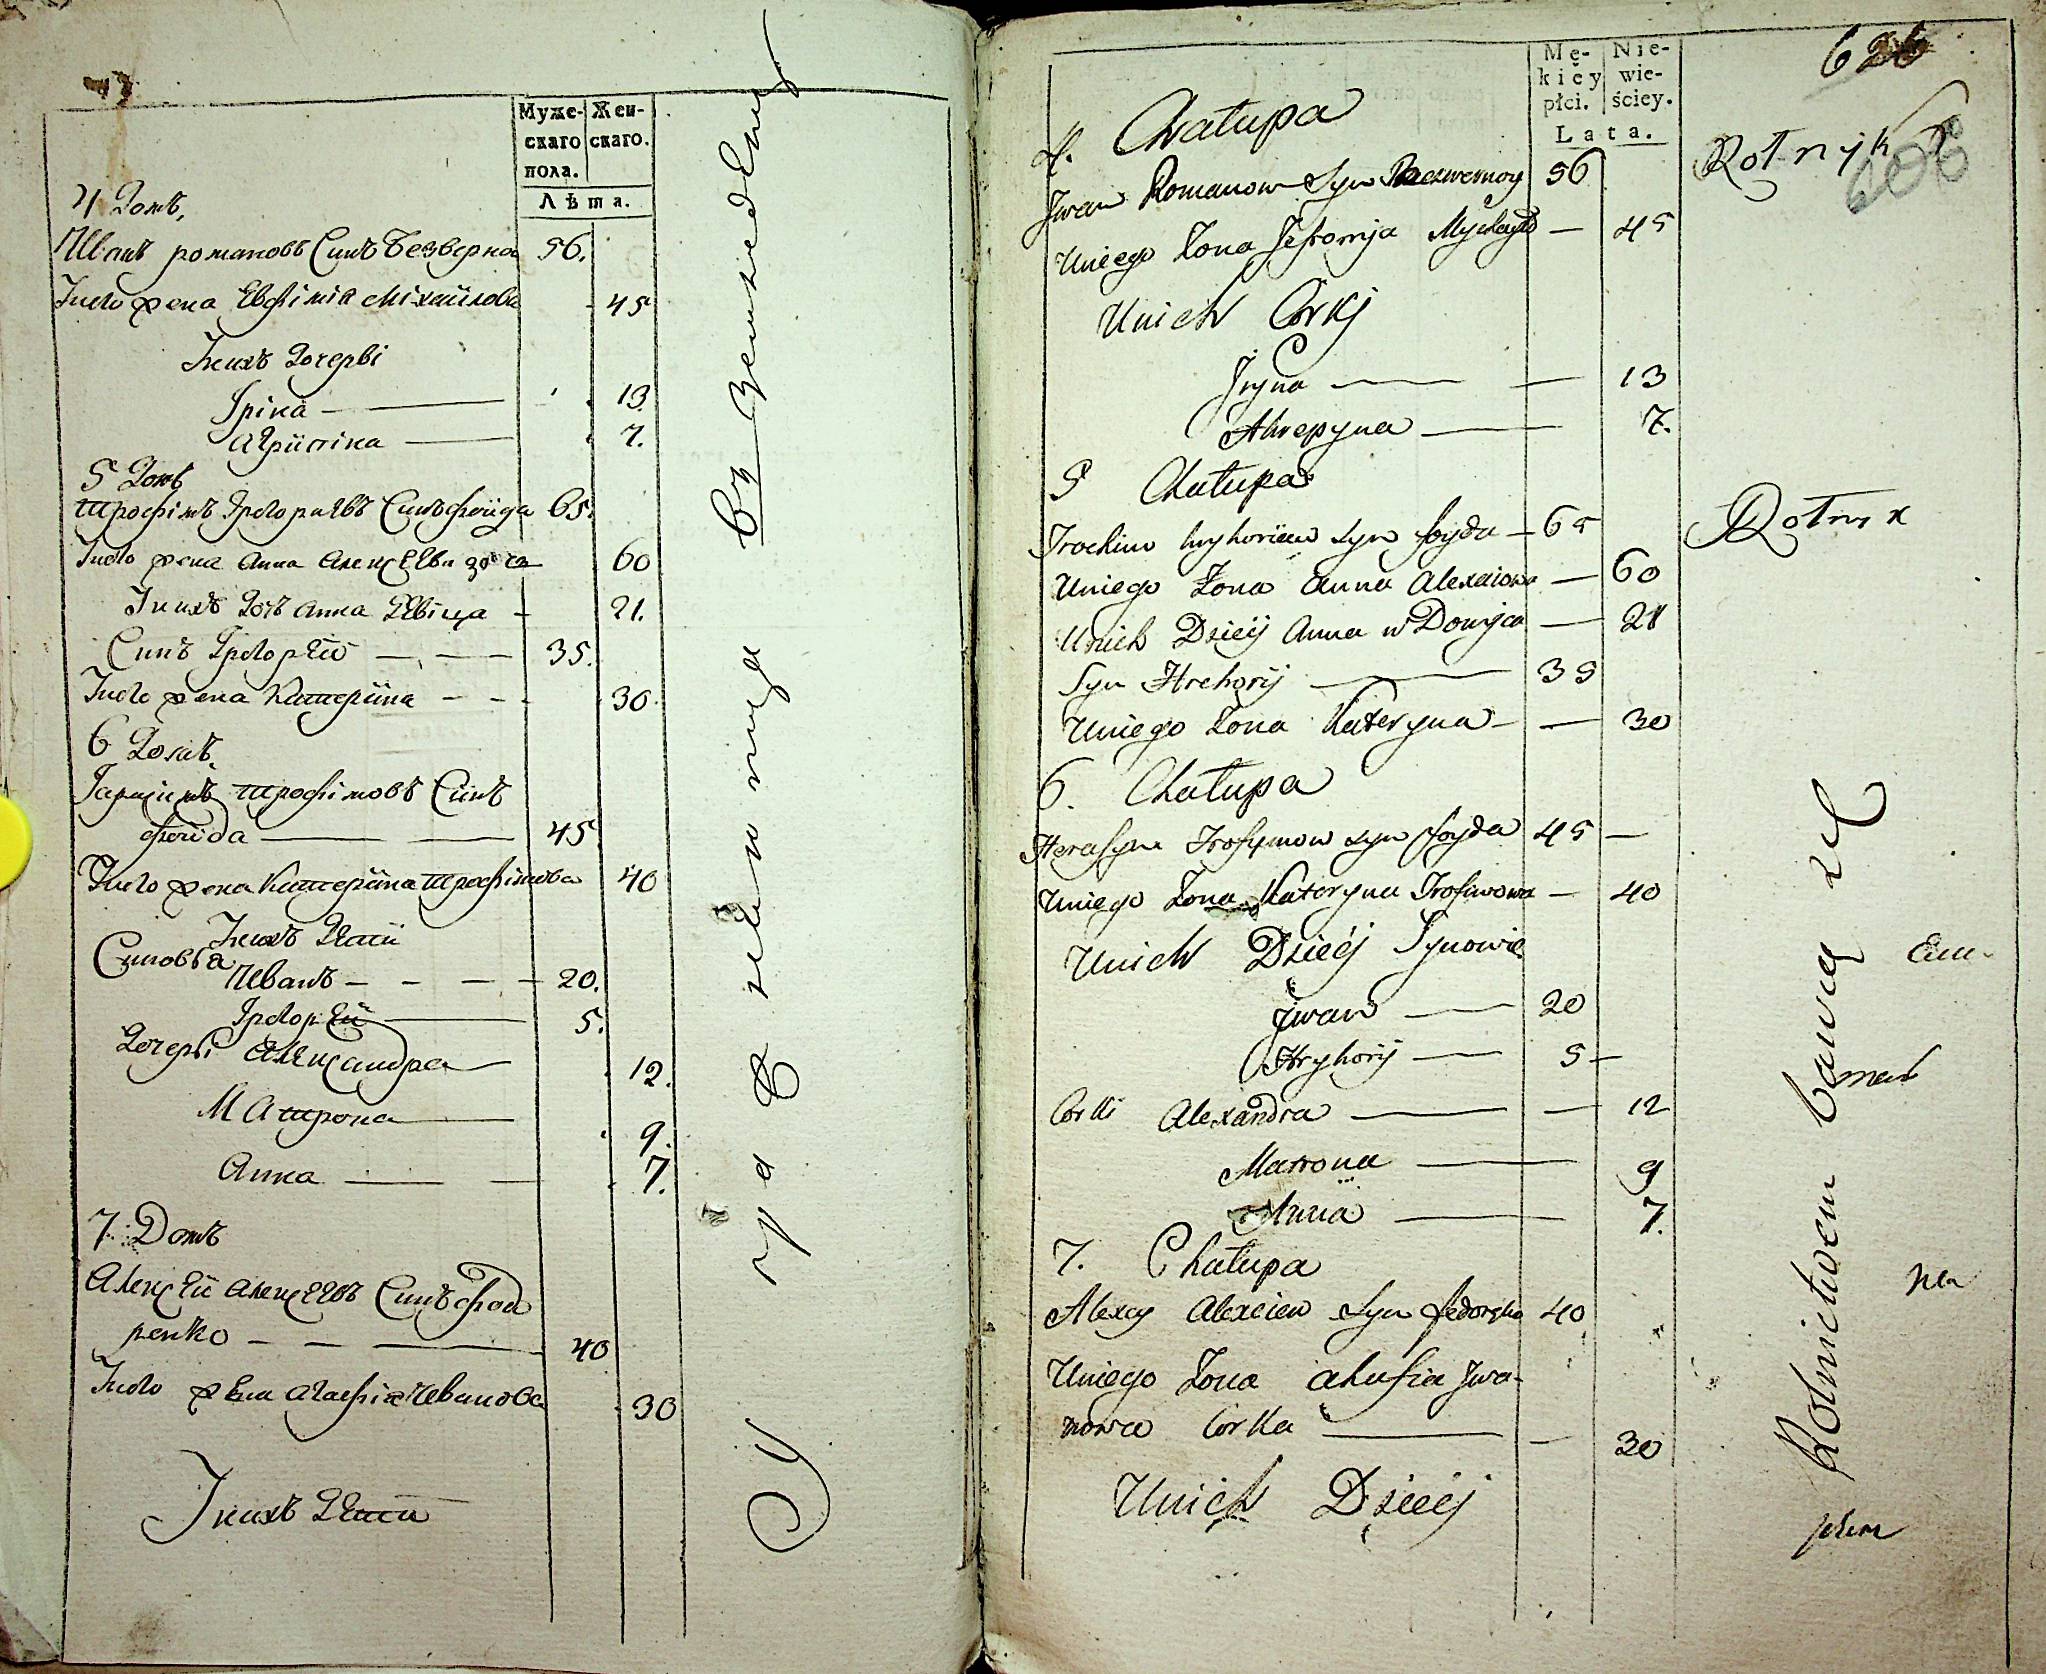 Муже- Жен-
скаго скаго.
пола.
Лѣта.
4 Домъ,
Иванъ романовъ Синъ безверноі 56.
Унего жена Евфиміа Міхаилова 45
Унихъ дочерві
Іріна 13.
агріпіна 7.
5 Домъ
трофімъ Григориевъ Синъ фойда 65.
Унего жена анна алексеева 60
Унихъ дочъ анна девіца 21.
Синъ Григорей 35.
Унего жена Катеріна 30
6 Домъ
Гарасимъ трофімовъ Синъ
фойда 45
Унего жена Катеріна трофімова 40
Унихъ Дети
Синовъя
Иванъ 20.
Григорей 5.
Дочерві александра 12.
Матрона 9.
Анна 7.
7. Домъ
Алексей алексеевъ Синъ фод
ренко 40
Унего жена агафіа Иванова 30
Унихъ Дети
въ земледелиі
Mę- Nie-
kiéy wie-
płci. ściey.
Lata.
626
608
4. Chałupa
Rolnyk
Jwan Romanow Syn Bezwernoy 56
Uniego Żona Jefromja 45
Unich Corkj
Jryna 13
Ahrepyna 7.
5 Chałupa
Rolnik
Trochim hryhoriew syn foyda 65
Uniego Żona Anna Alexeiowa 60
Unich Dzieij Anna w Domjca 21
Syn Hrehorij 35
Uniego Żona Kateryna 30
6. Chałupa
Herasym Trofymow syn foyda 45
Uniego Żona Kateryna Trofimowa 40
Unich Dziećj Synowie
Jwan 20
Hryhorij 5
Corki Alexandra 12
Matrona 9
Anna 7.
7. Chałupa
Alexey Alexeiew syn fedorenko 40
Uniego Żona ahafia Jwa-
nowa Corka 30
Unich Dziećj
Rolnictwem bawią się